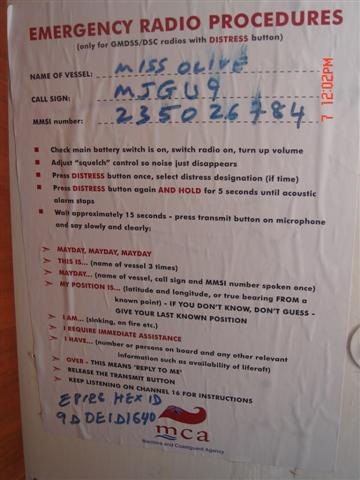 EMERGENCY RADIO PROCEDURES
(only for GMDSS/DSC radios with DISTRESS button)
NAME OF VESSEL: MISS OLIVE
CALL SIGN: MJGU9
MMSI number: 235026784
Check main battery switch is on, switch radio on, turn up volume
Adjust "squelch" control so noise just disappears
Press DISTRESS button once, select distress designation (if time)
Press DISTRESS button again AND HOLD for 5 seconds until acoustic
alarm stops
Wait approximately 15 seconds - press transmit button on microphone
and say slowly and clearly:
MAYDAY, MAYDAY, MAYDAY
THIS IS... (name of vessel 3 times)
MAYDAY... (name of vessel, call sign and MMSI number spoken once)
MY POSITION IS... (latitude and longitude, or true bearing FROM a
known point) - IF YOU DON'T KNOW, DON'T GUESS -
GIVE YOUR LAST KNOWN POSITION
I AM... (sinking, on fire etc.)
I REQUIRE IMMEDIATE ASSISTANCE
I HAVE... (number or persons on board and any other relevant
information such as availability of liferaft)
OVER - THIS MEANS 'REPLY TO ME'
RELEASE THE TRANSMIT BUTTON
KEEP LISTENING ON CHANNEL 16 FOR INSTRUCTIONS
EPIRB HEX ID
9DDE1D1640
mca
Maritime and Coastguard Agency
7 12:02PM